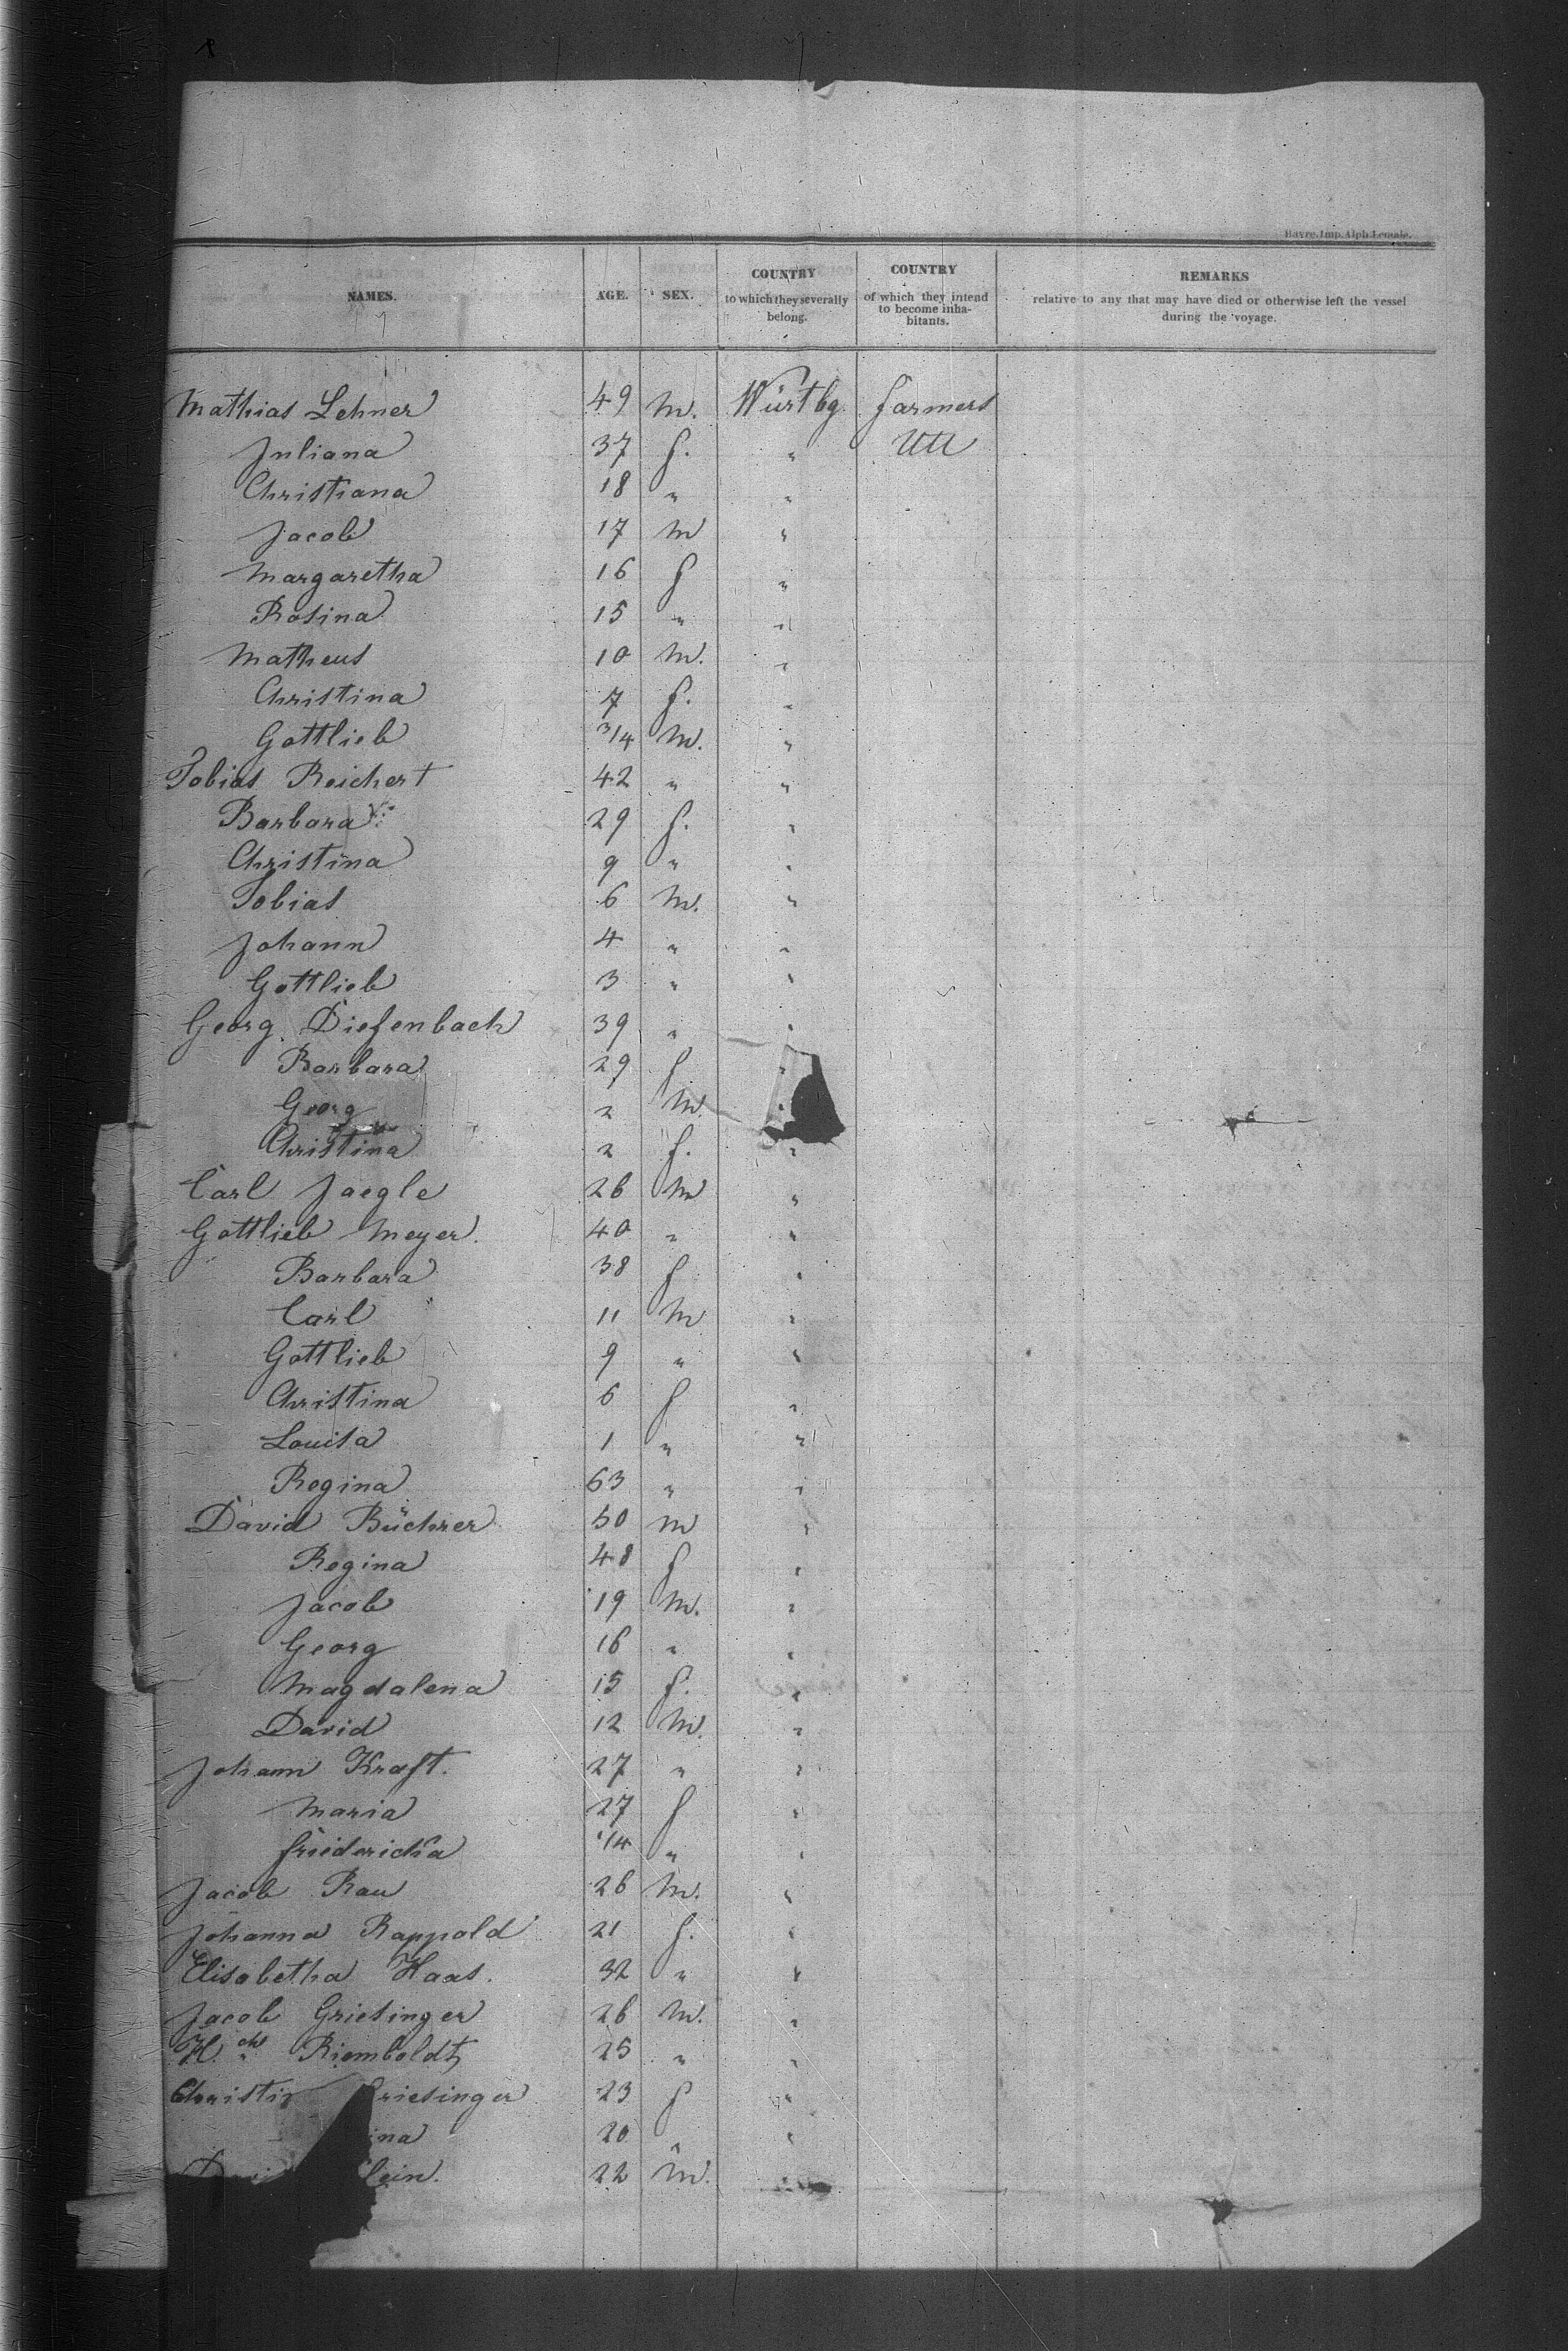 Havre. Imp. Alph. Lemale.
NAMES. AGE. SEX. COUNTRY to which they severally belong. COUNTRY of which they intend to become inhabitants. REMARKS relative to any that may have died or otherwise left the vessel during the voyage.
Mathias Lehner 49 m. Würtbg. farmers
Juliana 37 f. "
Christiana 18 " "
Jacob 17 m "
Margaretha 16 f "
Rosina 15 " "
Matheus 10 m. "
Christina 7 f. "
Gottlieb 3/4 m. "
Tobias Reichert 42 " "
Barbara 29 f. "
Christina 9 " "
Tobias 6 m. "
Johann 4 " "
Gottlieb 3 " "
Georg Diefenbach 39 " "
Barbara 29 f "
Georg 2 m. "
Christina 2 f. "
Carl Jaegle 26 m "
Gottlieb Meyer. 40 " "
Barbara 38 f "
Carl 11 m "
Gottlieb 9 " "
Christina 6 f "
Louisa 1 " "
Regina 63 " "
David Büchner 50 m "
Regina 48 f "
Jacob 19 m. "
Georg 16 " "
Magdalena 15 f. "
David 12 m. "
Johann Kraft. 27 " "
Maria 27 f "
Friedericka 1/4 " "
Jacob Rau 26 m. "
Johanna Rappold 21 f. "
Elisabetha Haas. 32 " "
Jacob Griesinger 26 m. "
H.ch Riemboldt 25 " "
Christi riesinger 23 f "
ina 20 " "
Davi lein. 22 m. "